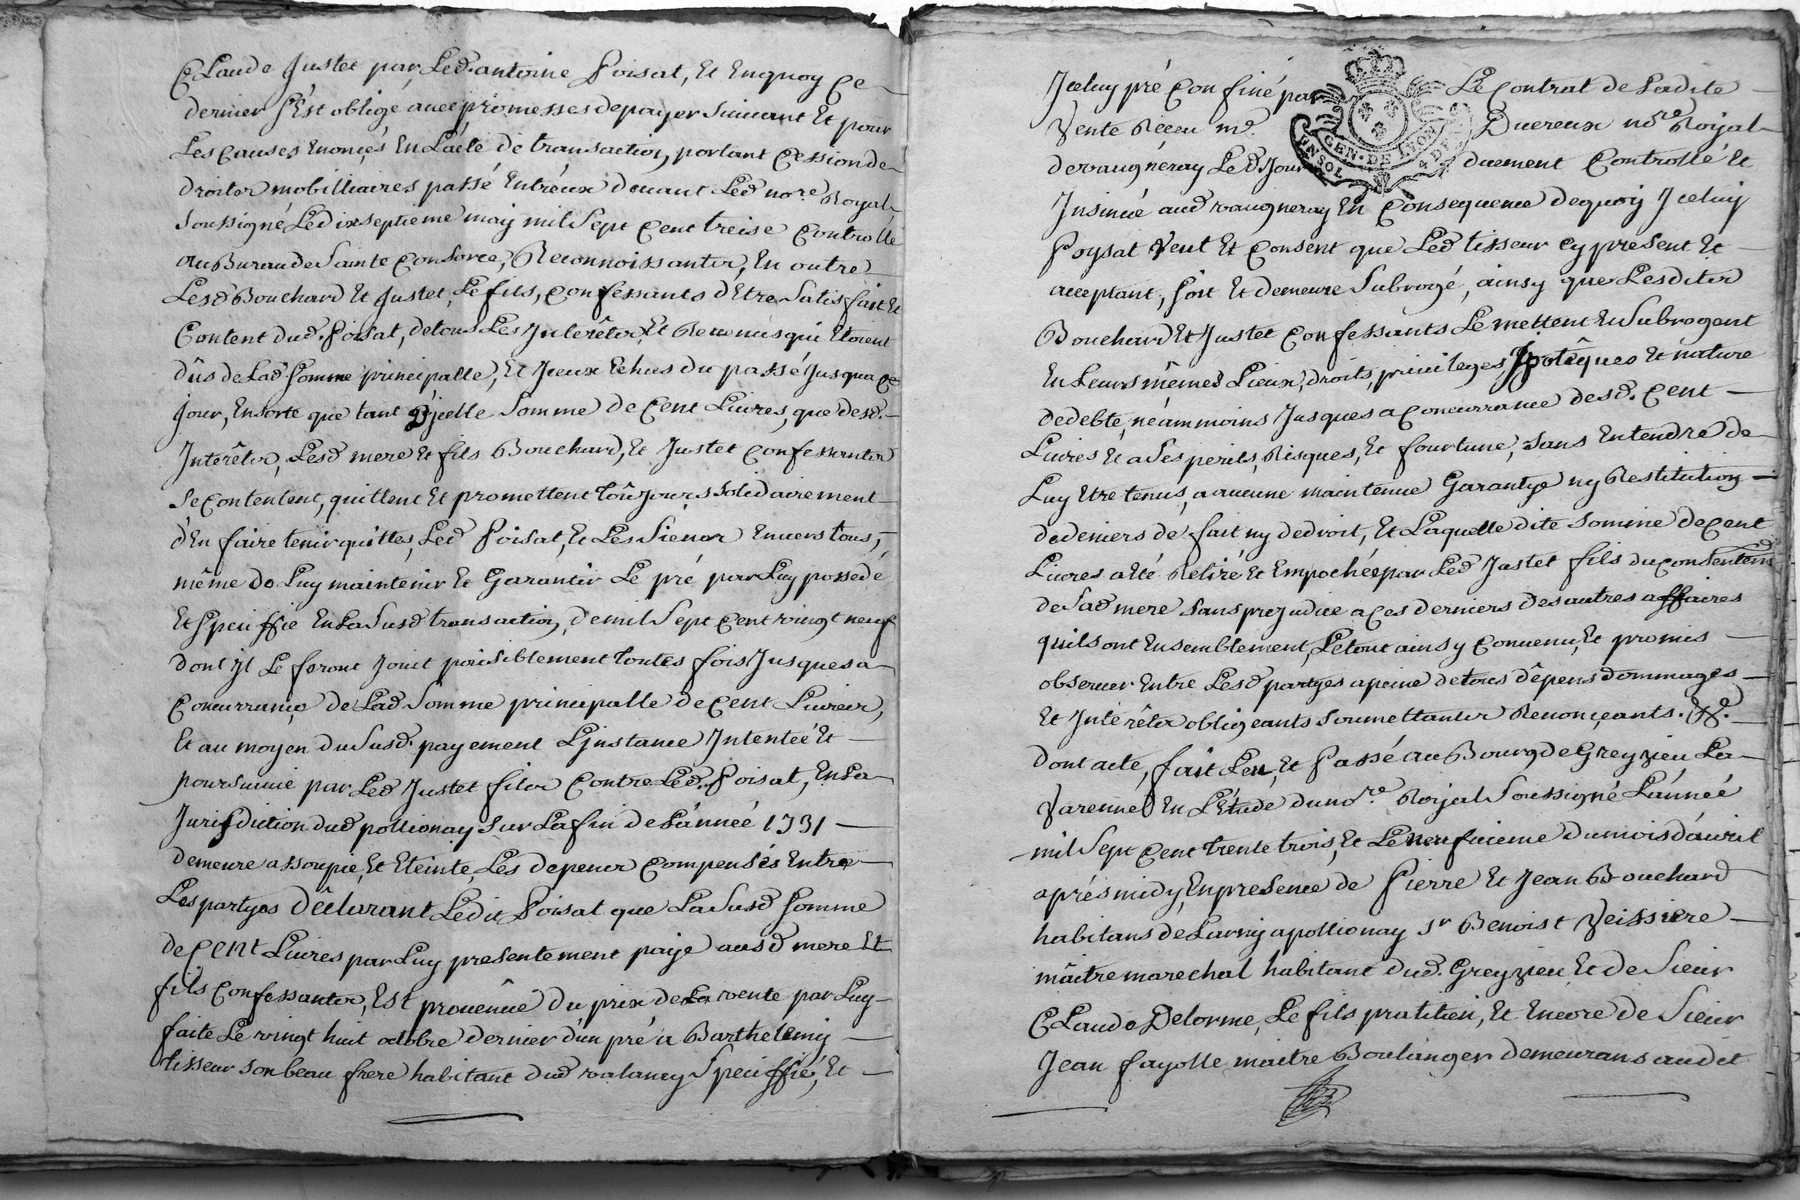 Claude Justet par Led. antoine Poisat, Et Enquoy Ce
dernier s'Est obligé avec promesses de payer suivant Et pour
Les Causes Enoncés En L'acte de transaction, portant Cession de
droiter mobilliaires passé Entr'eux devant Led nore. Royal
soussigné Le dix septieme may mil sept cent treise Controllé
au Bureau de Sainte Consorce, Reconnoissanter, En outre
Lesd Bouchard Et Justet, Le fils, confessants d'Etre satisfait Et
Content dud. Poisat, de tous Les Interêter, Et Revenus qui Etoient
dûs de Lad somme principalle, Et Jceux Echus du passé jusqua ce
jour, Ensorte que tant d'Jcelle somme de Cent Livres, que desd.
Interêter, Lesd mere Et fils Bouchard, Et Justet Confessanter
se Contentent, quittent Et promettent toûjours solidairement
d'En faire tenir quittes, Led Poisat, Et Les Siéner Envers tous,
même de Luy maintenir Et Garantir Le pré par Luy possedé
Et speciffié En La susd transaction, de mil sept cent vingt neuf
dont Jl Le feront Jouit paisiblement toutes fois Jusques a
Concurrance de Lad somme principalle de Cent Livrer,
Et au moyen du susd. payement L'Jnstance Jntentée Et
poursuivie par Led Justet filer Contre Led. Poisat, En La
Jurisdiction dud pollionay sur La fin de L'année 1731
demeure assoupie, Et Eteinte, Les depener Compensés Entre
Les partyes Déclarant Ledit Poisat que La susd somme
de Cent Livres par Luy presentement payé ausd mere Et
fils Confessanter, Est provenüe du prix de La vente par Luy
faite Le vingt huit octobre dernier d'un pré a Barthelemy
tisseur son beau frere habitant dud valancy speciffié, Et
Jceluy pré Confiné par Le Contrat de Ladite
Vente Reçeu me. Duereux nore Royal
de vaugneray Led. Jour duement Controllé Et
Insinüé aud vaugneray En Consequence de quoy Jceluy
Poysat Veut Et Consent que Led tisseur cy present Et
acceptant, soit Et demeure Subrogé, ainsy que Lesditer
Bouchard Et Justet Confessants Le mettent En Subrogent
En Leurs mêmes Lieux, droits, privileges Jpotêques Et nature
de debte, néammoins Jusques a Concurrance desd. Cent
Livres Et a ses perils, Risques, Et fourtune, sans Entendre de
Luy Etre tenus, a aucune maintenue Garantye ny Restitution
de deniers de fait ny de droit, Et Laquelle dite somme de cent
Livres a Eté Retiré Et Empochée par Led Justet fils du consentemt
de Sad mere sans prejudice a ces derniers des autres affaires
quils ont Ensemblement, Le tout ainsy Convenu, Et promis
observer Entre Lesd partyes a peine de tous dêpens dommages
Et Intérêter obligeants soumettanter Renonçeants. &.
dont acte, fait Leu, Et Passé au Bourg de Greyzieu La
Varenne En L'Etude du nore. Royal soussigné L'année
mil sept cent trente trois, Et Le neuficeme du mois d'avril
aprés midy, En presence de Pierre Et Jean Bouchard
habitans de Larny a pollionay sr Benoist Veissiere
mâitre marechal habitant dud. Greyzieu Et de Sieur
Claude Delorme, Le fils pratitien, Et Encore de Sieur
Jean fayolle maitre Boulanger demeurans audit
GEN. DE LYON